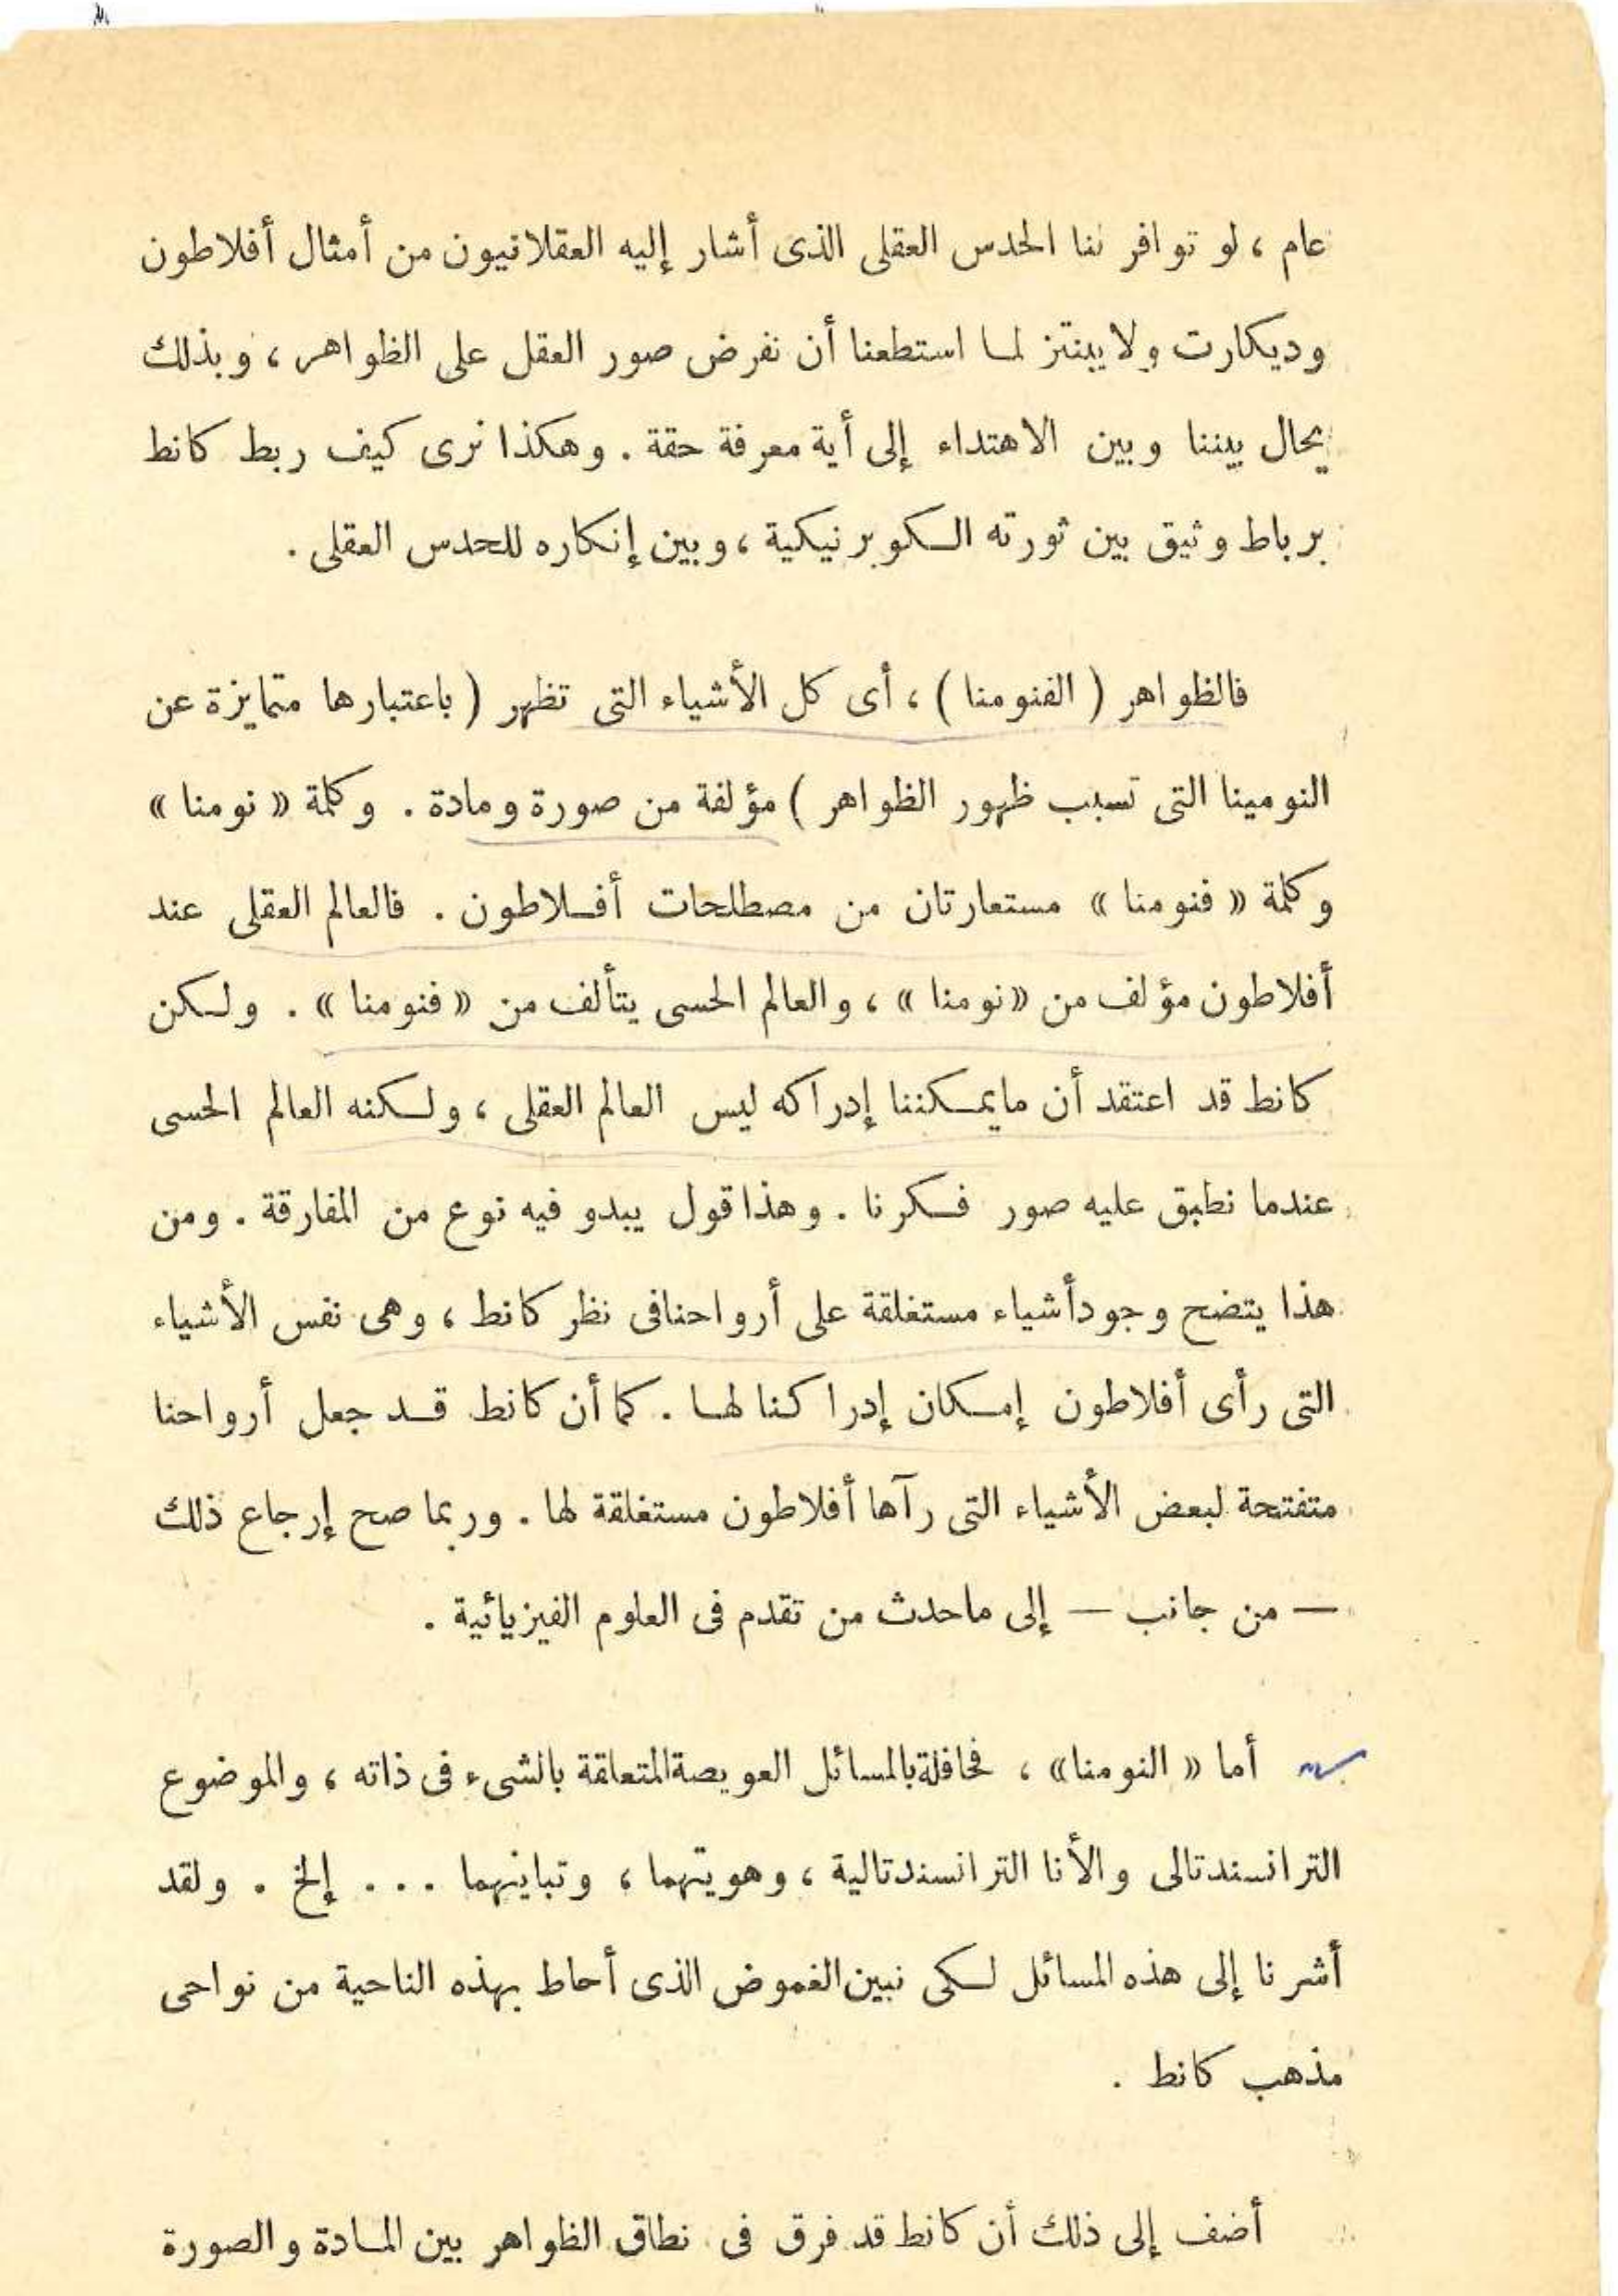 عام ، لو توافر لنا الحدس العقلى الذى أشار إليه العقلانيون من أمثال أفلاطون
وديكارت ولايبنتز لما استطعنا أن نفرض صور العقل على الظواهر ، وبذلك
يحال بيننا وبين الاهتداء إلى أية معرفة حقة . وهكذا نرى كيف ربط كانط
برباط وثيق بين ثورته الكوبرنيكية ، وبين إنكاره للحدس العقلى .
فالظواهر ( الفنومنا ) ، أى كل الأشياء التى تظهر ( باعتبارها متمايزة عن
النومينا التى تسبب ظهور الظواهر ) مؤلفة من صورة ومادة . وكلمة « نومنا »
وكلمة « فنومنا » مستعارتان من مصطلحات أفلاطون . فالعالم العقلى عند
أفلاطون مؤلف من « نومنا » ، والعالم الحسى يتألف من « فنومنا » . ولكن
كانط قد اعتقد أن مايمكننا إدراكه ليس العالم العقلى ، ولكنه العالم الحسى
عندما نطبق عليه صور فكرنا . وهذا قول يبدو فيه نوع من المفارقة . ومن
هذا يتضح وجود أشياء مستغلقة على أرواحنا فى نظر كانط ، وهى نفس الأشياء
التى رأى أفلاطون إمكان إدراكنا لها . كما أن كانط قد جعل أرواحنا
متفتحة لبعض الأشياء التى رآها أفلاطون مستغلقة لها . وربما صح إرجاع ذلك
— من جانب — إلى ماحدث من تقدم فى العلوم الفيزيائية .
أما « النومنا » ، فحافلة بالمسائل العويصة المتعلقة بالشىء فى ذاته ، والموضوع
الترانسندتالى والأنا الترانسندتالية ، وهويتهما ، وتباينهما . . . إلخ . ولقد
أشرنا إلى هذه المسائل لكى نبين الغموض الذى أحاط بهذه الناحية من نواحى
مذهب كانط .
أضف إلى ذلك أن كانط قد فرق فى نطاق الظواهر بين المادة والصورة